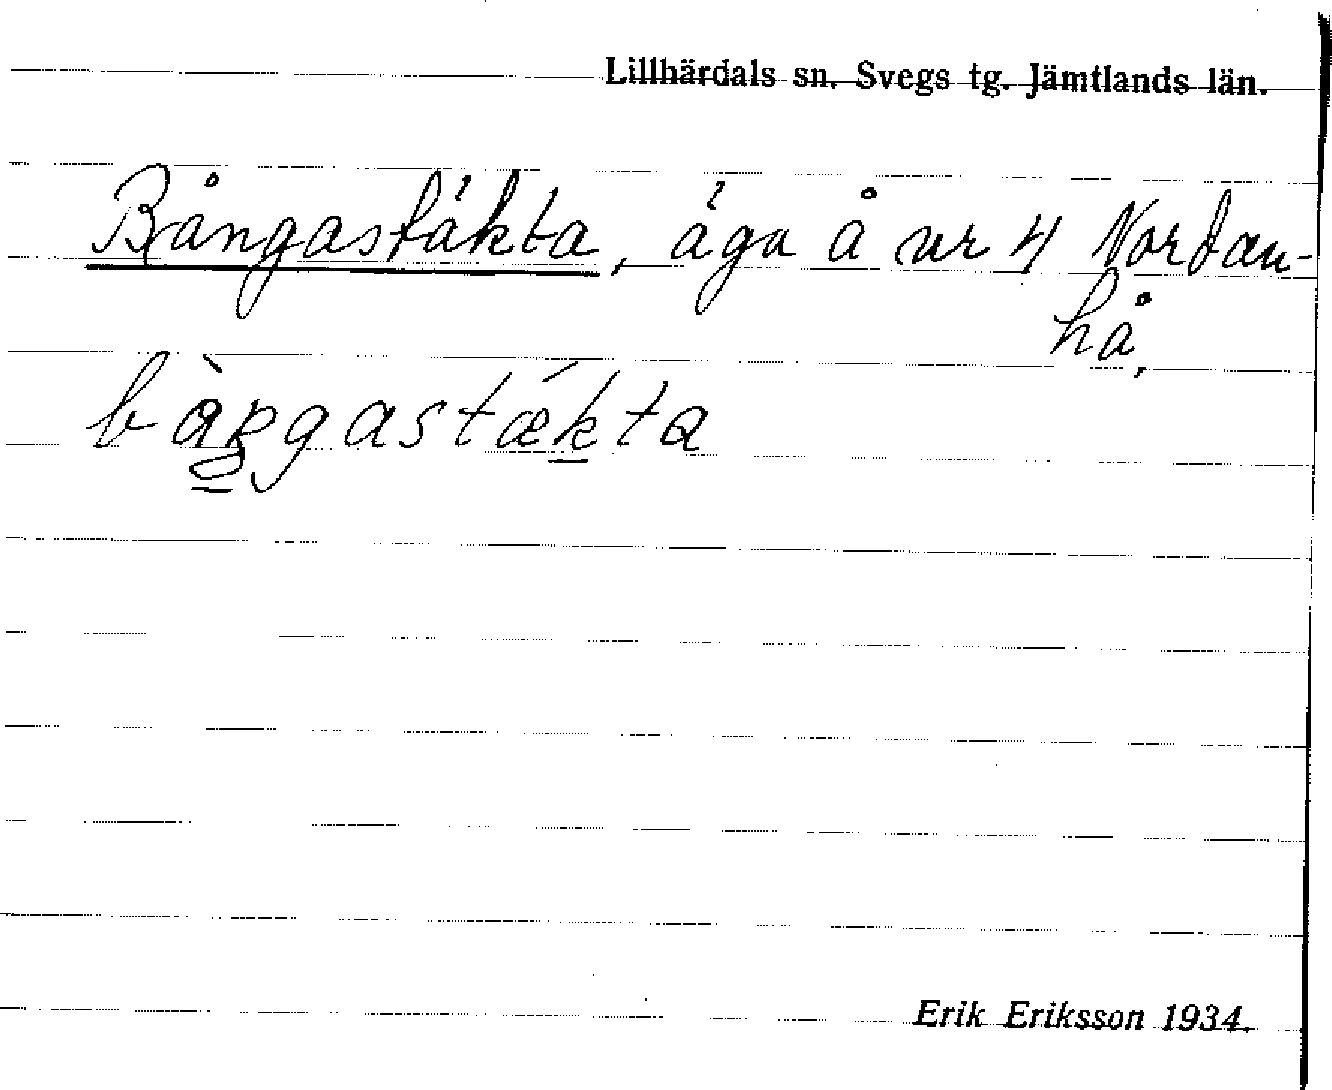 Lillhärdals sn. Svegs tg. Jämtlands län.
Bångastäkta, äga å nr 4 Nordan-
hå,
Erik Eriksson 1934.